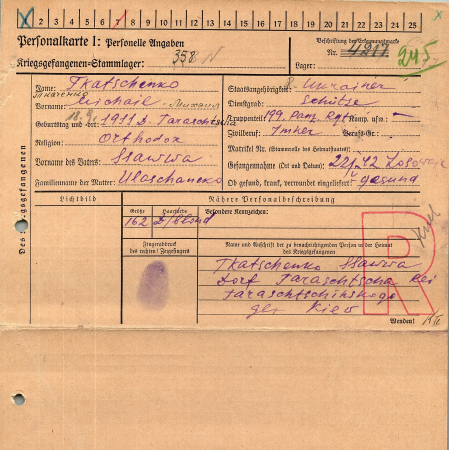 X 2 3 4 5 6 7 8 9 10 11 12 13 14 15 16 17 18 19 20 21 22 23 24 25
Personalkarte I: Personelle Angaben
Kriegsgefangenen-Stammlager: 358 N
Beschriftung der Erkennungsmarke
Nr. 4217 245
Lager:
Des Kriegsgefangenen
Name: Tkatschenko
Ткаченко
Vorname: Michail - Михаил
Geburtstag und -ort: 18.9. 1911 D. Taraschtscha
Religion: Orthodox
Vorname des Vaters: Ssawwa
Familienname der Mutter:
Staatsangehörigkeit: Ukrainer
Dienstgrad: Schütze
Truppenteil: 199. Panz. Rgt. Komp. usw.: —
Zivilberuf: Imker Berufs-Gr.:
Matrikel Nr. (Stammrolle des Heimatstaates):
Gefangennahme (Ort und Datum):
Ob gesund, krank, verwundet eingeliefert: gesund
Lichtbild
Nähere Personalbeschreibung
Größe Haarfarbe Besondere Kennzeichen:
162 D/blond
Fingerabdruck
des rechten! Zeigefingers
Name und Anschrift der zu benachrichtigenden Person in der Heimat
des Kriegsgefangenen
Tkatschenko Ssawwa
Dorf Taraschtscha Rei
Taraschtschinskogo
geb Kiew
R
Wenden!